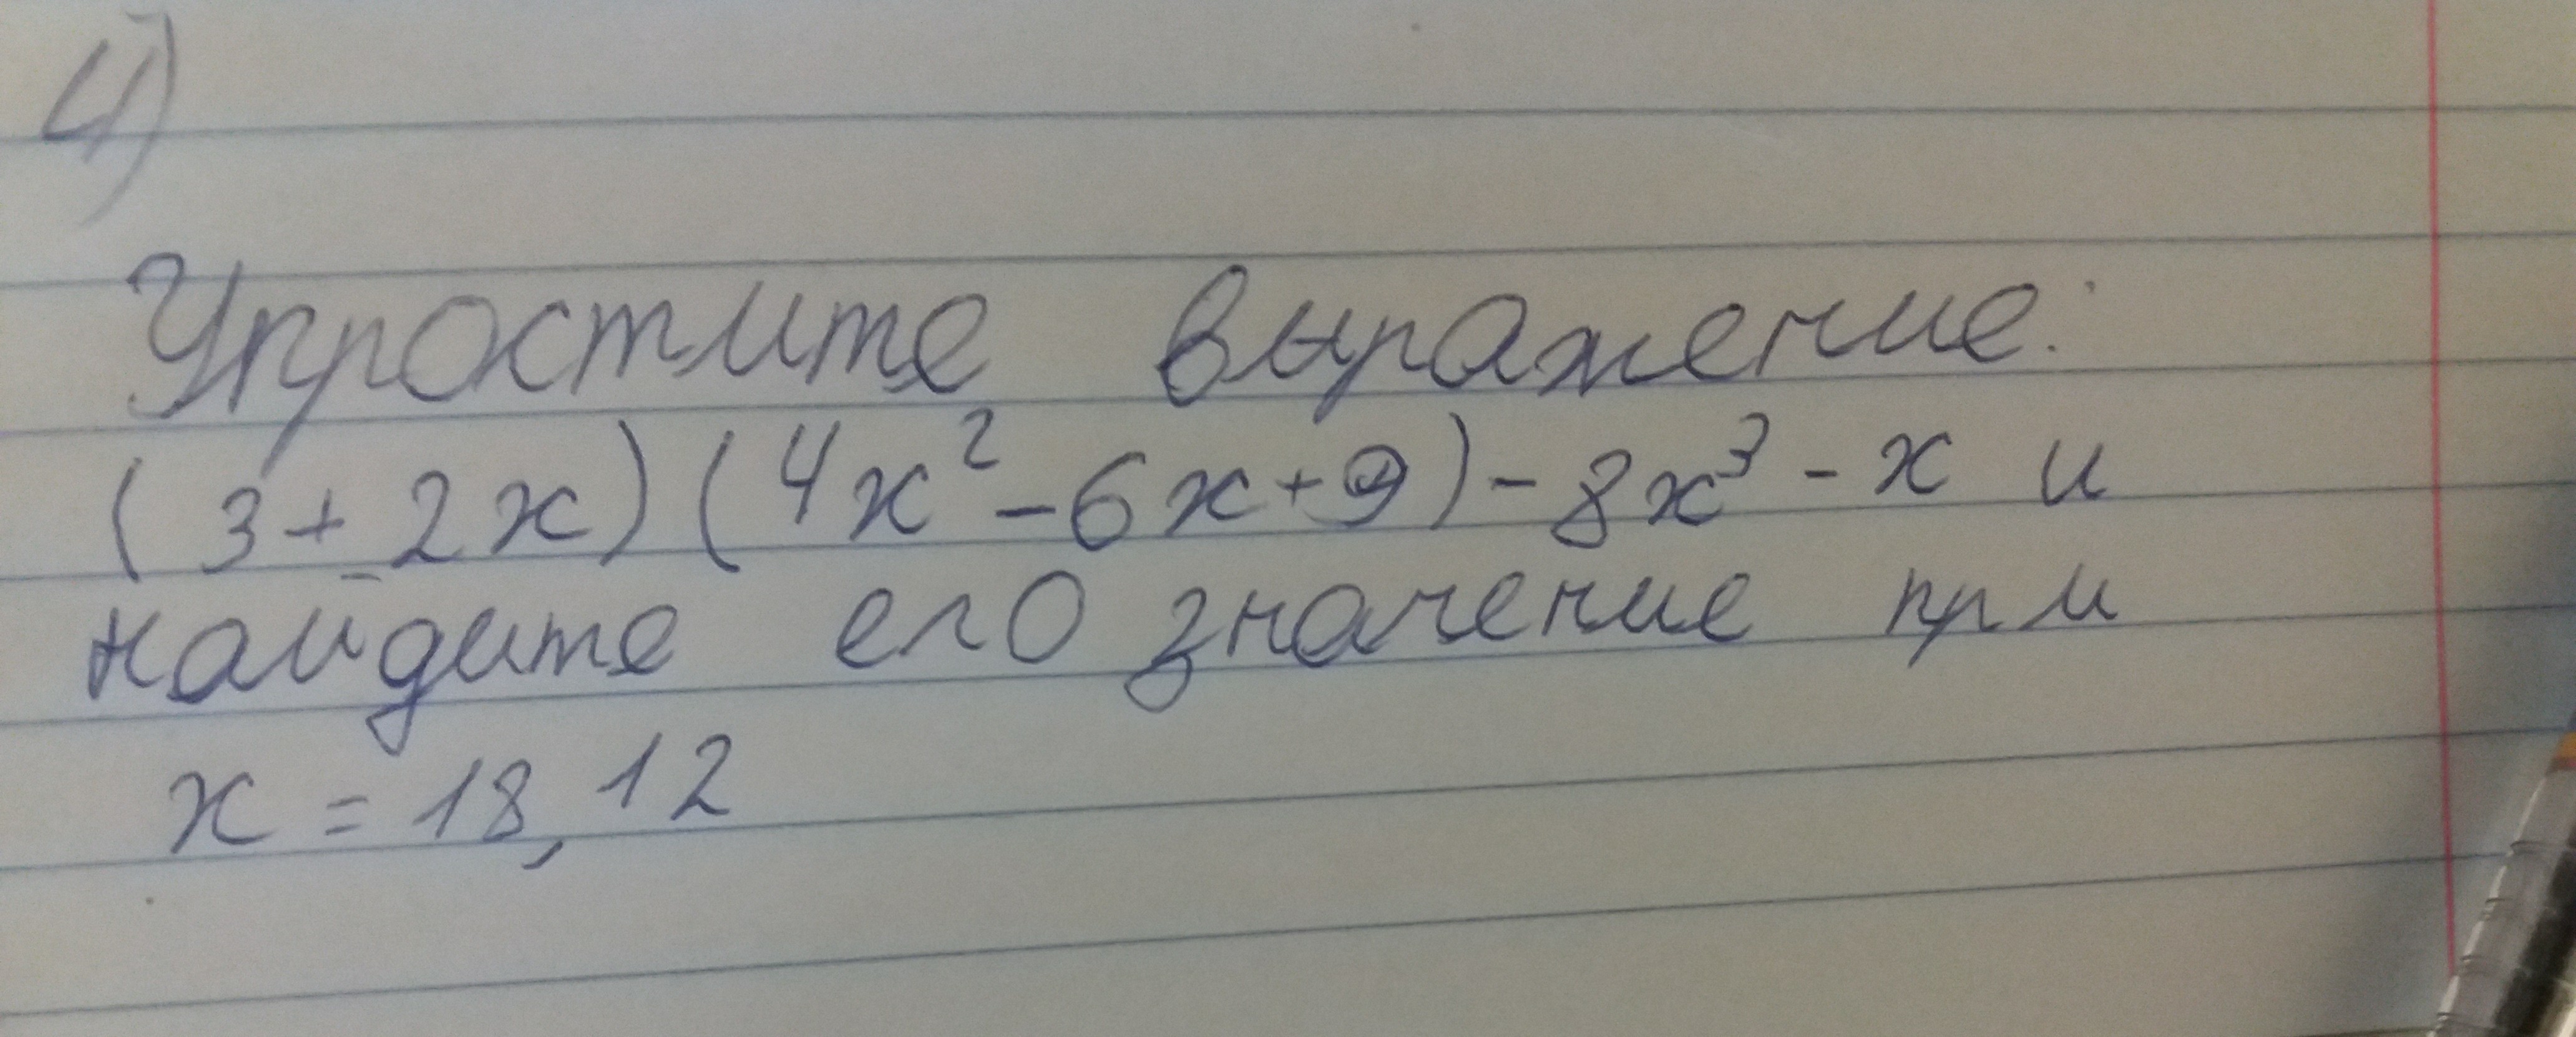 4)
Упростите выражение:
(3+2x)(4x²-6x+9)-8x³-x и
найдите его значение при
x=18,12